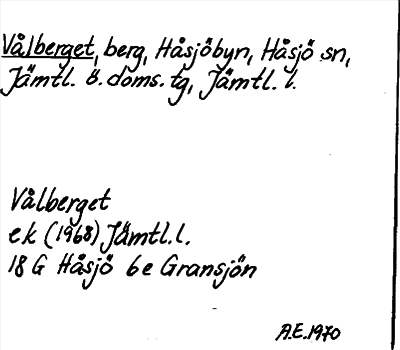 Vålberget, berg, Håsjöbyn, Håsjö sn,
Jämtl. ö. doms. tg, Jämtl. l.
Vålberget
ek (1968) Jämtl. l.
18 G Håsjö 6e Gransjön
A.E. 1970